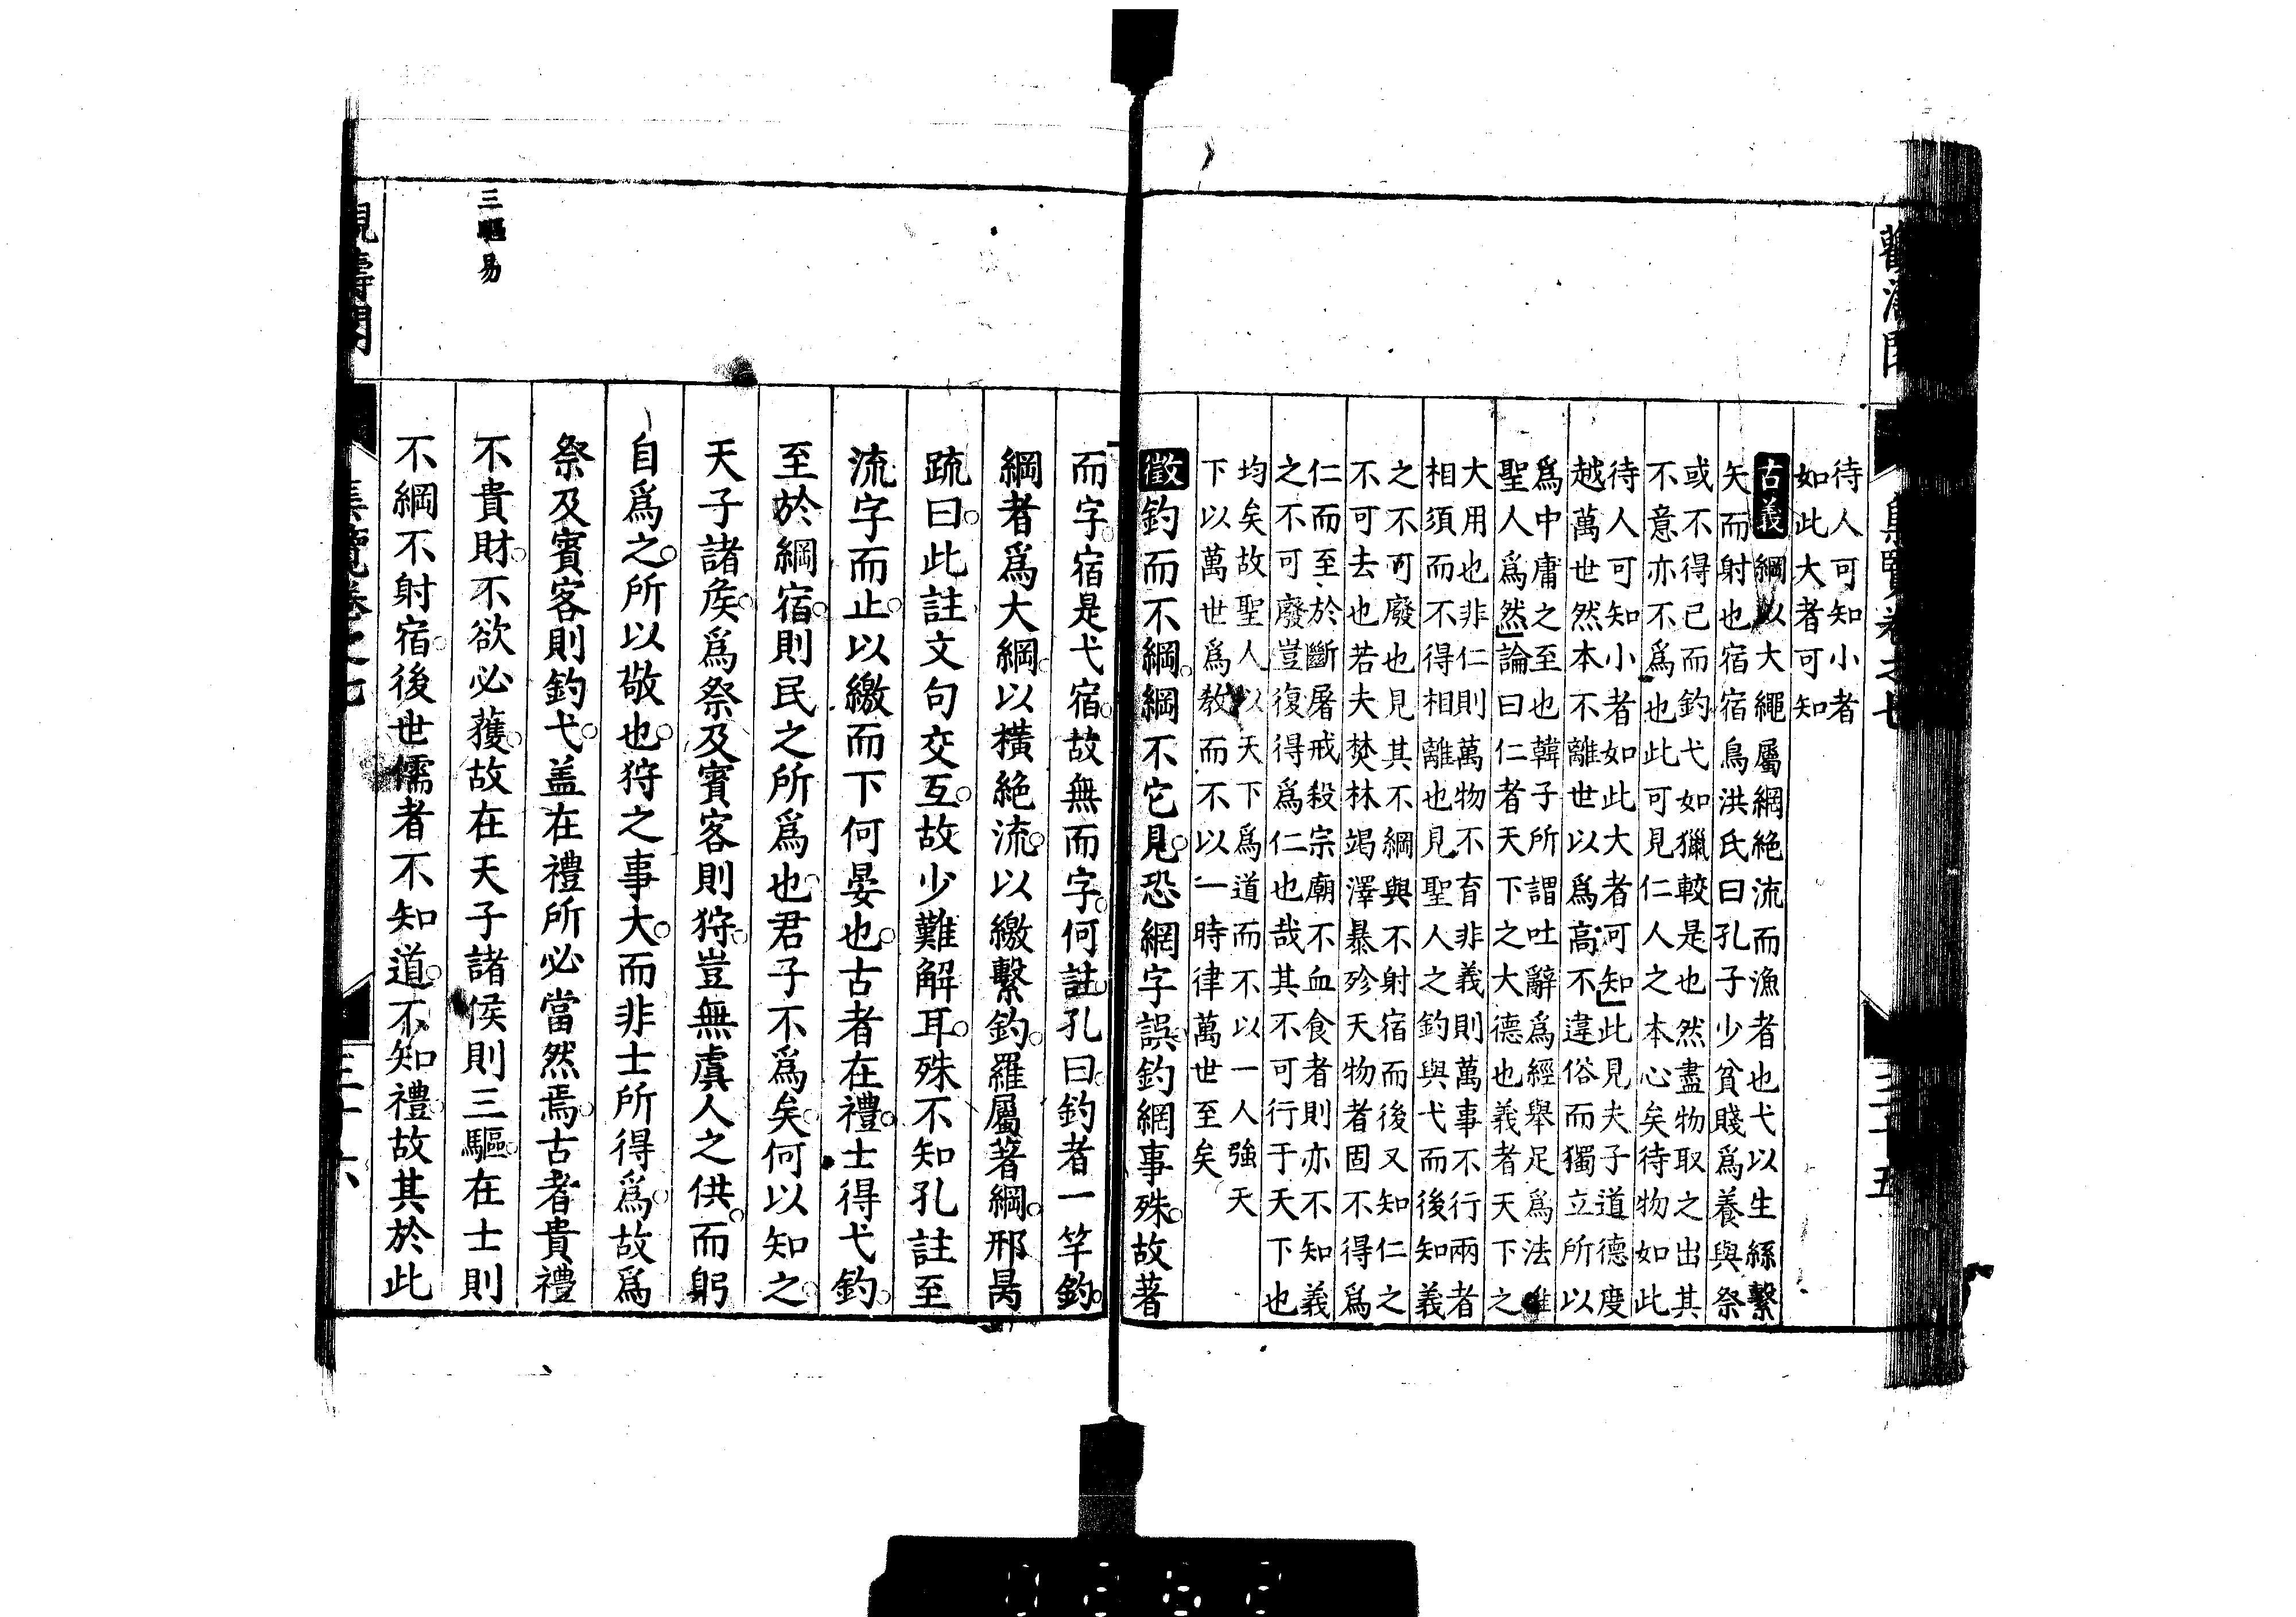 待人可知小者
如此大者可知
古義 綱以大繩屬網絶流而漁者也弋以生絲繫
矢而射也宿宿鳥洪氏曰孔子少貧賤爲養與祭
或不得已而釣弋如獵較是也然盡物取之出其
不意亦不爲也此可見仁人之本心矣待物如此
待人可知小者如此大者可知此見夫子道德度
越萬世然本不離世以爲高不違俗而獨立所以
爲中庸之至也韓子所謂吐辭爲經舉足爲法唯
聖人爲然論曰仁者天下之大德也義者天下之
大用也非仁則萬物不育非義則萬事不行兩者
相須而不得相離也見聖人之釣與弋而後知義
之不可廢也見其不綱與不射宿而後又知仁之
不可去也若夫焚林竭澤暴殄天物者固不得爲
仁而至於斷屠戒殺宗廟不血食者則亦不知義
之不可廢豈復得爲仁也哉其不可行于天下也
均矣故聖人以天下爲道而不以一人強天
下以萬世爲敎而不以一時律萬世至矣
徵釣而不綱綱不它見恐網字誤釣網事殊故著
而字宿是弋宿故無而字何註孔曰釣者一竿釣
綱者爲大綱以橫絶流以繳繫釣羅屬著綱邢昺
疏曰此註文句交互故少難解耳殊不知孔註至
流字而止以繳而下何晏也古者在禮士得弋釣
至於綱宿則民之所爲也君子不爲矣何以知之
天子諸矦爲祭及賓客則狩豈無虞人之供而躬
自爲之所以敬也狩之事大而非士所得爲故爲
祭及賓客則釣弋盖在禮所必當然焉古者貴禮
不貴財不欲必獲故在天子諸侯則三驅在士則
不綱不射宿後世儒者不知道不知禮故其於此
三驅易